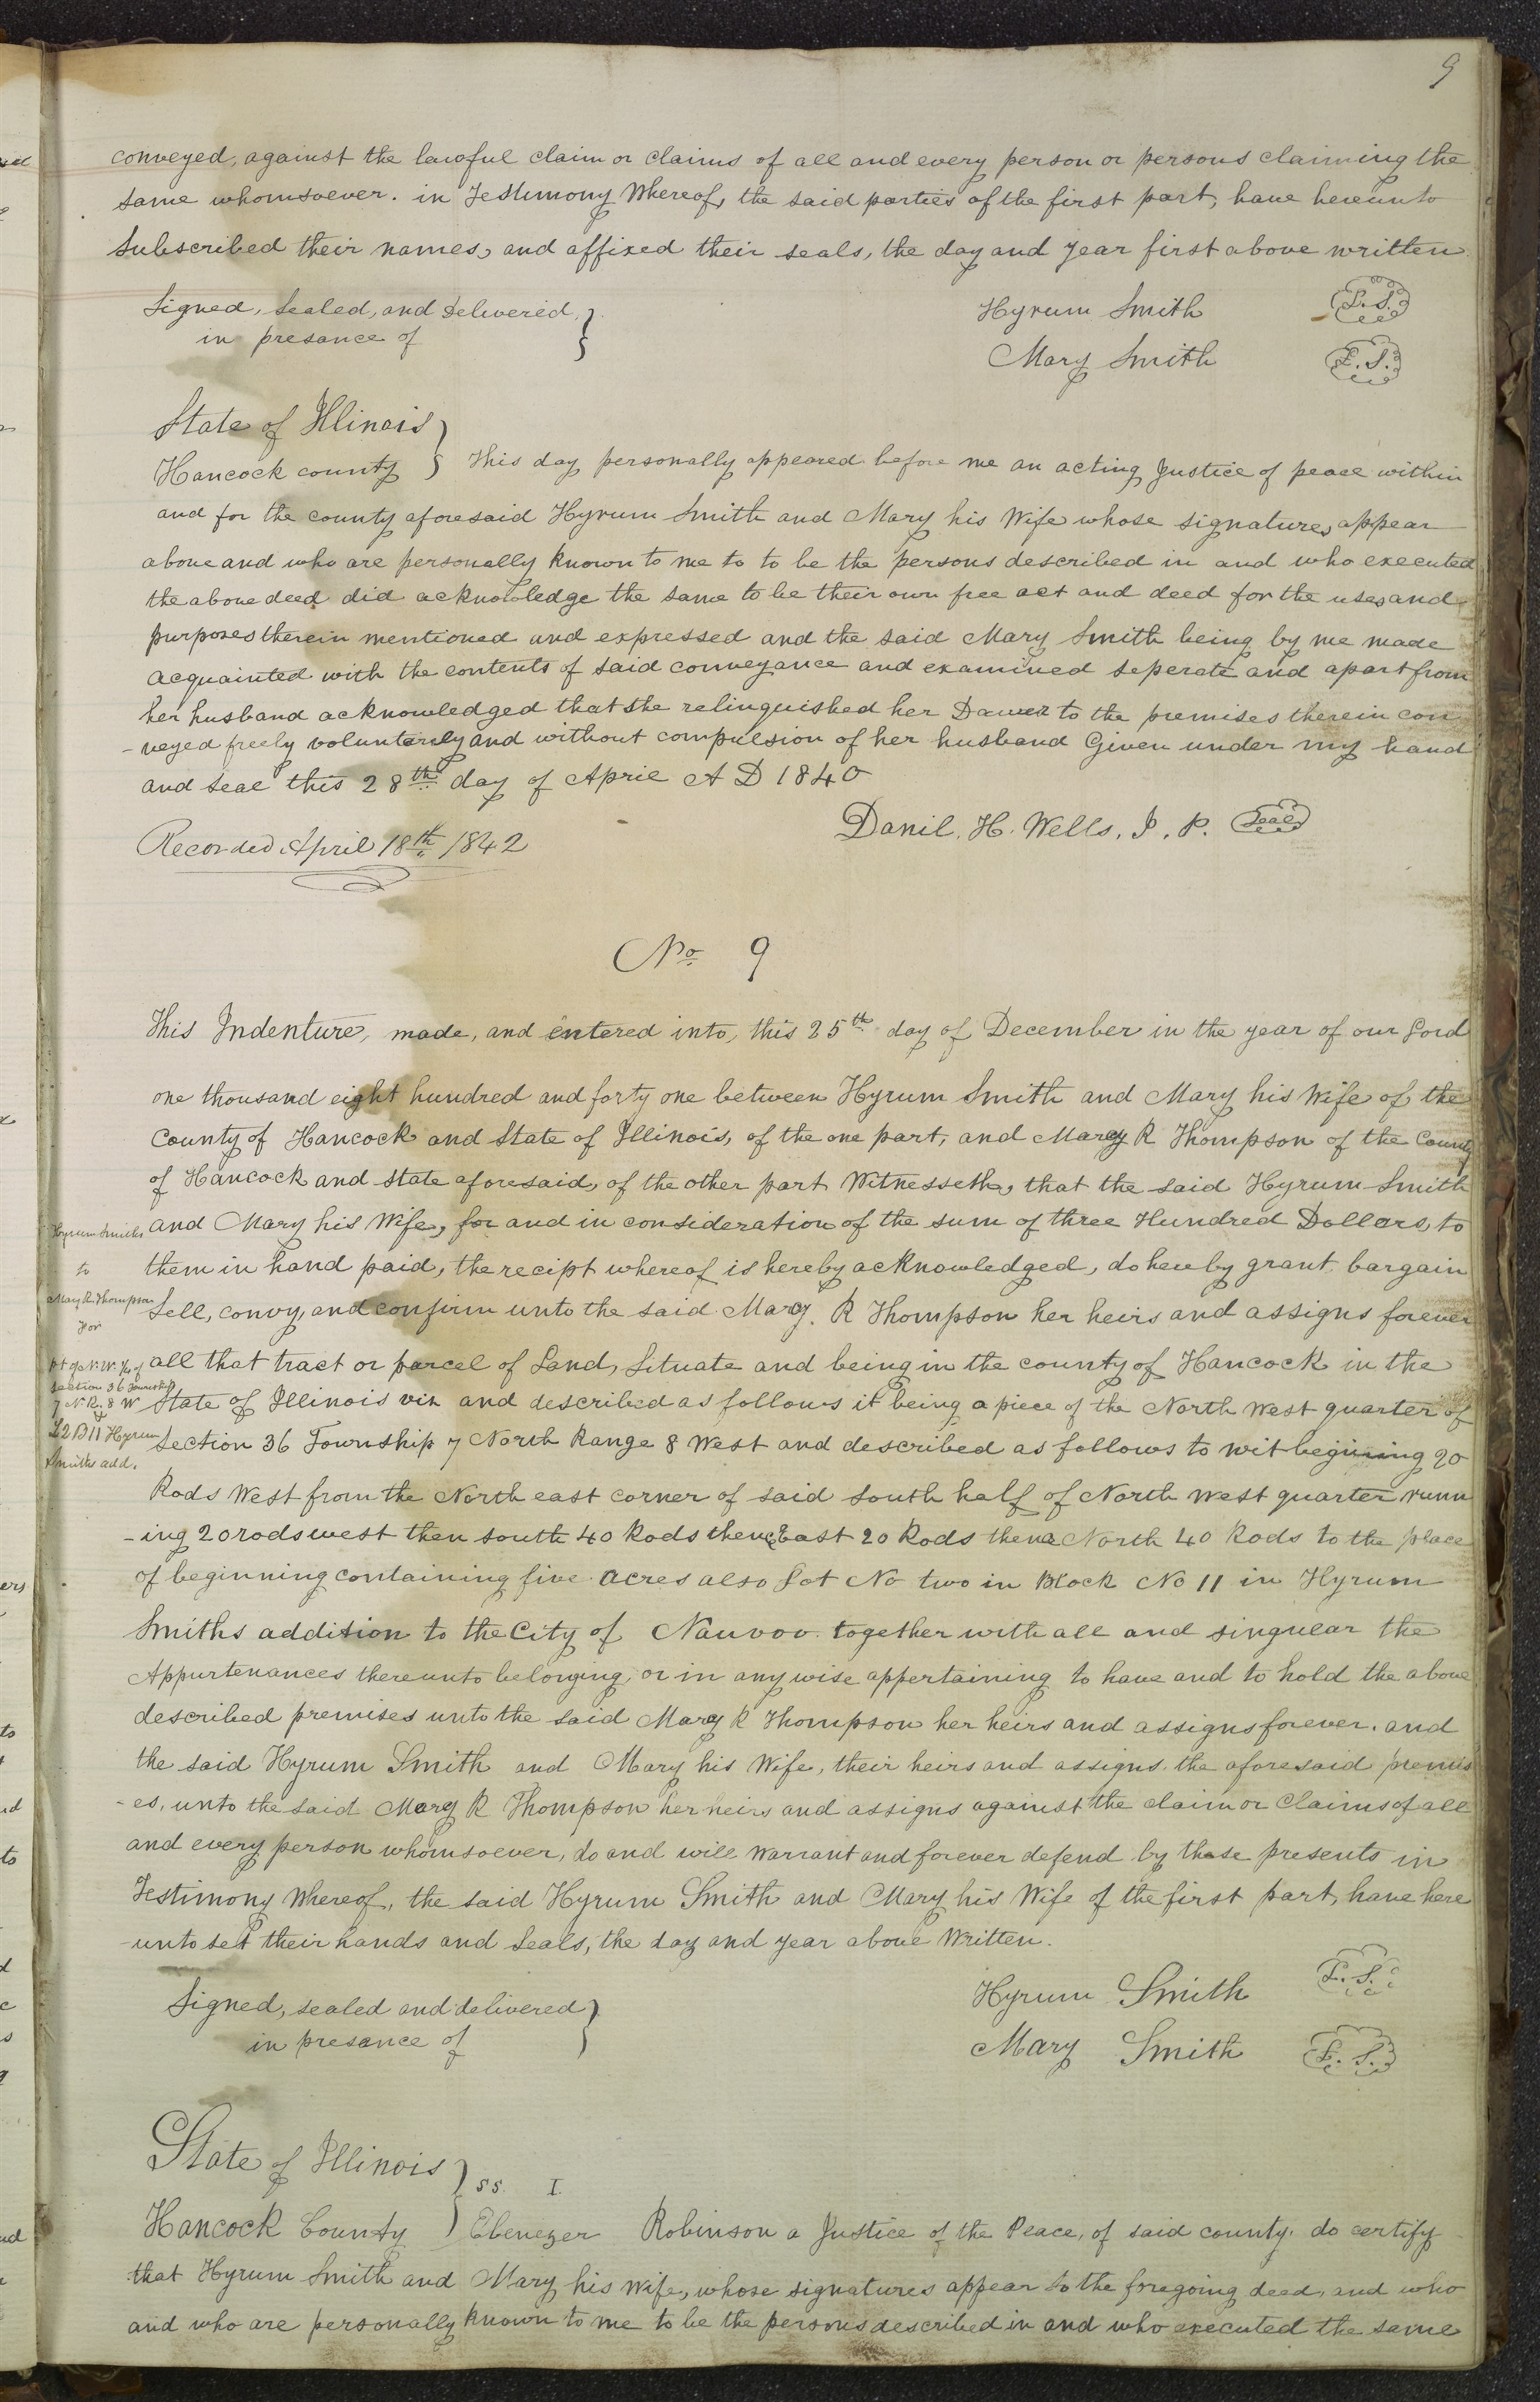 9
conveyed, against the lawful claim or claims of all and every person or persons claiming the
same whomsoever. in Testimony Whereof, the said parties of the first part, have hereunto
Subscribed their names, and affixed their seals, the day and year first above written
Signed, Sealed, and Delivered,
in presance of
Hyrum Smith L. S.
Mary Smith L. S.
State of Illinois
Hancock county } This day personally appeared before me an acting Justice of peace within
and for the county aforesaid Hyrum Smith and Mary his Wife whose signatures appear
above and who are personally known to me to to be the persons described in and who executed
the above deed did acknowledge the same to be their own free act and deed for the uses and
purposes therein mentioned and expressed and the said Mary Smith being by me made
acquainted with the contents of said conveyance and examined seperate and apart from
her husband acknowledged that she relinquished her Dower to the premises therein con
-veyed freely voluntarily and without compulsion of her husband Given under my hand
and Seal this 28th day of April A D 1840
Danil. H. Wells, J. P. Seal
Recorded April 18th 1842
No 9
This Indenture, made, and entered into, this 25th day of December in the year of our Lord
one thousand eight hundred and forty one between Hyrum Smith and Mary his Wife of the
County of Hancock and State of Illinois, of the one part, and Marcy R Thompson of the County
of Hancock and State aforesaid, of the other part Witnesseth, that the said Hyrum Smith
and Mary his Wife, for and in consideration of the sum of three Hundred Dollars, to
them in hand paid, the recipt whereof is hereby acknowledged, do hereby grant bargain
Sell, convy, and confirm unto the said Marcy. R Thompson her heirs and assigns forever
all that tract or parcel of Land, Situate and being in the county of Hancock in the
State of Illinois viz and described as follows it being a piece of the North West quarter of
Section 36 Township 7 North Range 8 West and described as follows to wit begining 20
Rods West from the North east corner of said south half of North west quarter runn
-ing 20 rods west then south 40 Rods thence East 20 Rods thence North 40 Rods to the place
of beginning containing five acres also Lot No two in Block No 11 in Hyrum
Smiths addition to the City of Nauvoo together with all and singular the
Appurtenances thereunto belonging, or in any wise appertaining to have and to hold the above
described premises unto the said Marcy R Thompson her heirs and assigns forever. and
the said Hyrum Smith and Mary his Wife, their heirs and assigns. the aforesaid premis
-es, unto the said Marcy R Thompson her heirs and assigns against the claim or Claims of all
and every person whomsoever, do and will warrant and forever defend by these presents in
Testimony Whereof, the said Hyrum Smith and Mary his Wife of the first part, have here
-unto set their hands and Seals, the day and year above Written.
Hyrum Smiths
to
Mary R. Thompson
For
pt of N. W. 1/4 of
section 36 Township
7 N. R. 8 W
&
L 2 B 11 Hyrum
Smiths add.
Signed, sealed and delivered
in presance of
Hyrum Smith L. S.
Mary Smith L. S.
State of Illinois } ss. I.
Hancock County } Ebenezer Robinson a Justice of the Peace, of said county. do certify
that Hyrum Smith and Mary his wife, whose signatures appear to the foregoing deed, and who
and who are personally known to me to be the persons described in and who executed the same